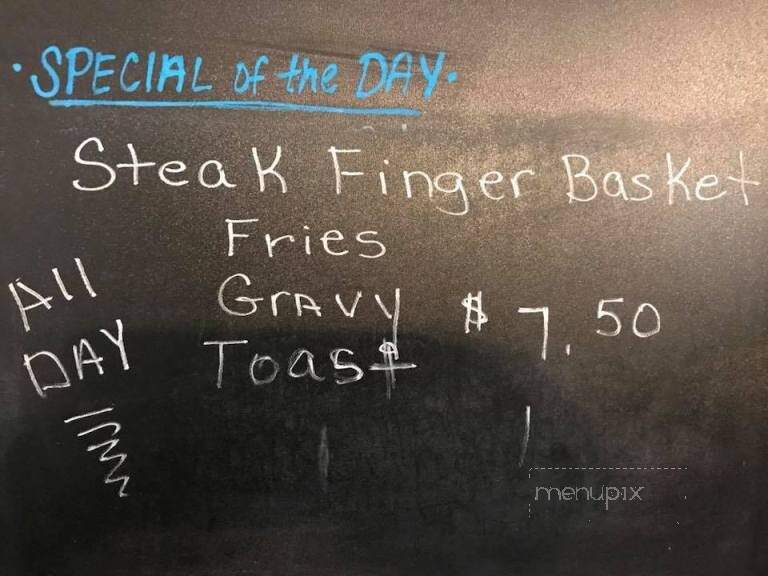 ·SPECIAL of the DAY·
Steak Finger Basket
Fries
Gravy $7.50
Toast
All
DAY
menupix